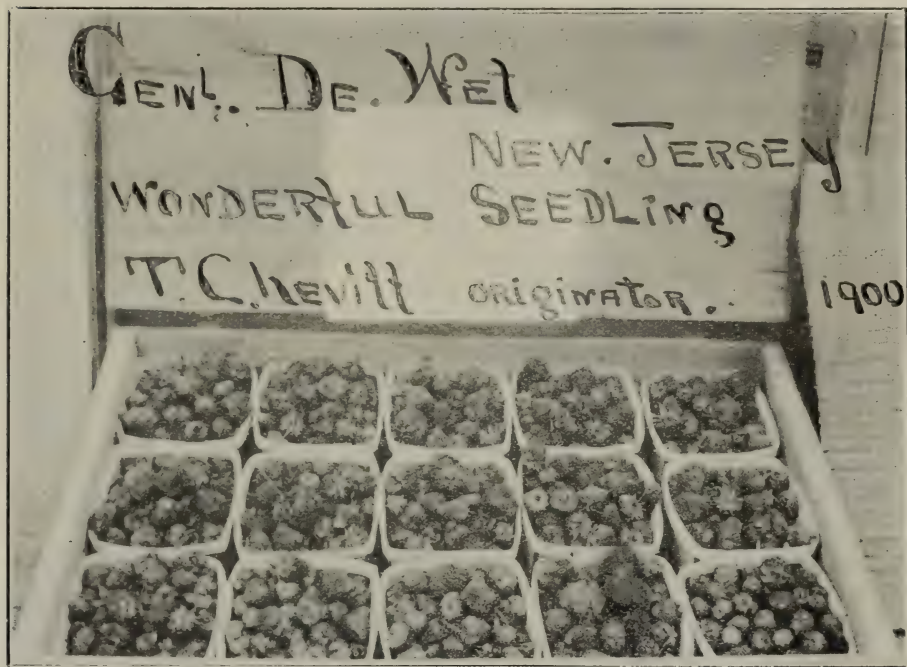 GENL. DE. WET
NEW. JERSEY
WONDERFUL SEEDLING
T. C. KEVITT ORIGINATOR.. 1900